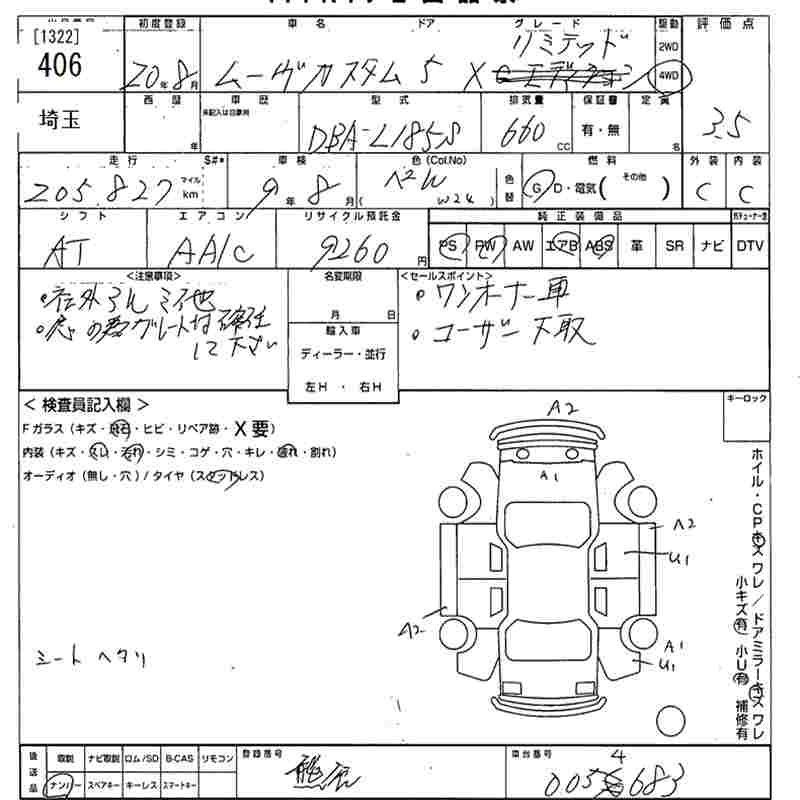 [1322]
406
埼玉
初度登録
20年8月
車名
ドア
ムーヴカスタム 5
グレード
X リミテッド
駆動
2WD
4WD
評価点
3.5
西暦
年
車歴
未記入は自家用
型式
DBA-L185S
排気量
660 CC
保証書
有・無
定員
名
走行
205.827
マイル
km
S#*
車検
9年8月
色(Col.No)
ベージュ
(W24)
色替
燃料
G D・電気( その他 )
外装
C
内装
C
シフト
AT
エアコン
AA/C
リサイクル預託金
9260 円
純正装備品
PS PW AW エアB ABS 革 SR ナビ DTV
<注意事項>
・社外アルミ他
名変期限
月 日
輸入車
ディーラー・並行
左H ・ 右H
<セールスポイント>
・ワンオーナー車
・ユーザー下取
キーロック
< 検査員記入欄 >
Fガラス(キズ・飛石・ヒビ・リペア跡・X要)
内装(キズ・スレ・汚れ・シミ・コゲ・穴・キレ・破れ・割れ)
オーディオ(無し・穴)/タイヤ(スタッドレス)
シートヘタリ
A2
A1
A2
U1
A2
A1
U1
ホイル・CPキズ ワレ/ドアミラーキズ ワレ
小キズ有 小U有 補修有
後送品
取説 ナビ取説 ロム/SD B-CAS リモコン
ナンバー スペアキー キーレス スマートキー
登録番号
熊谷
車台番号
4
005 683